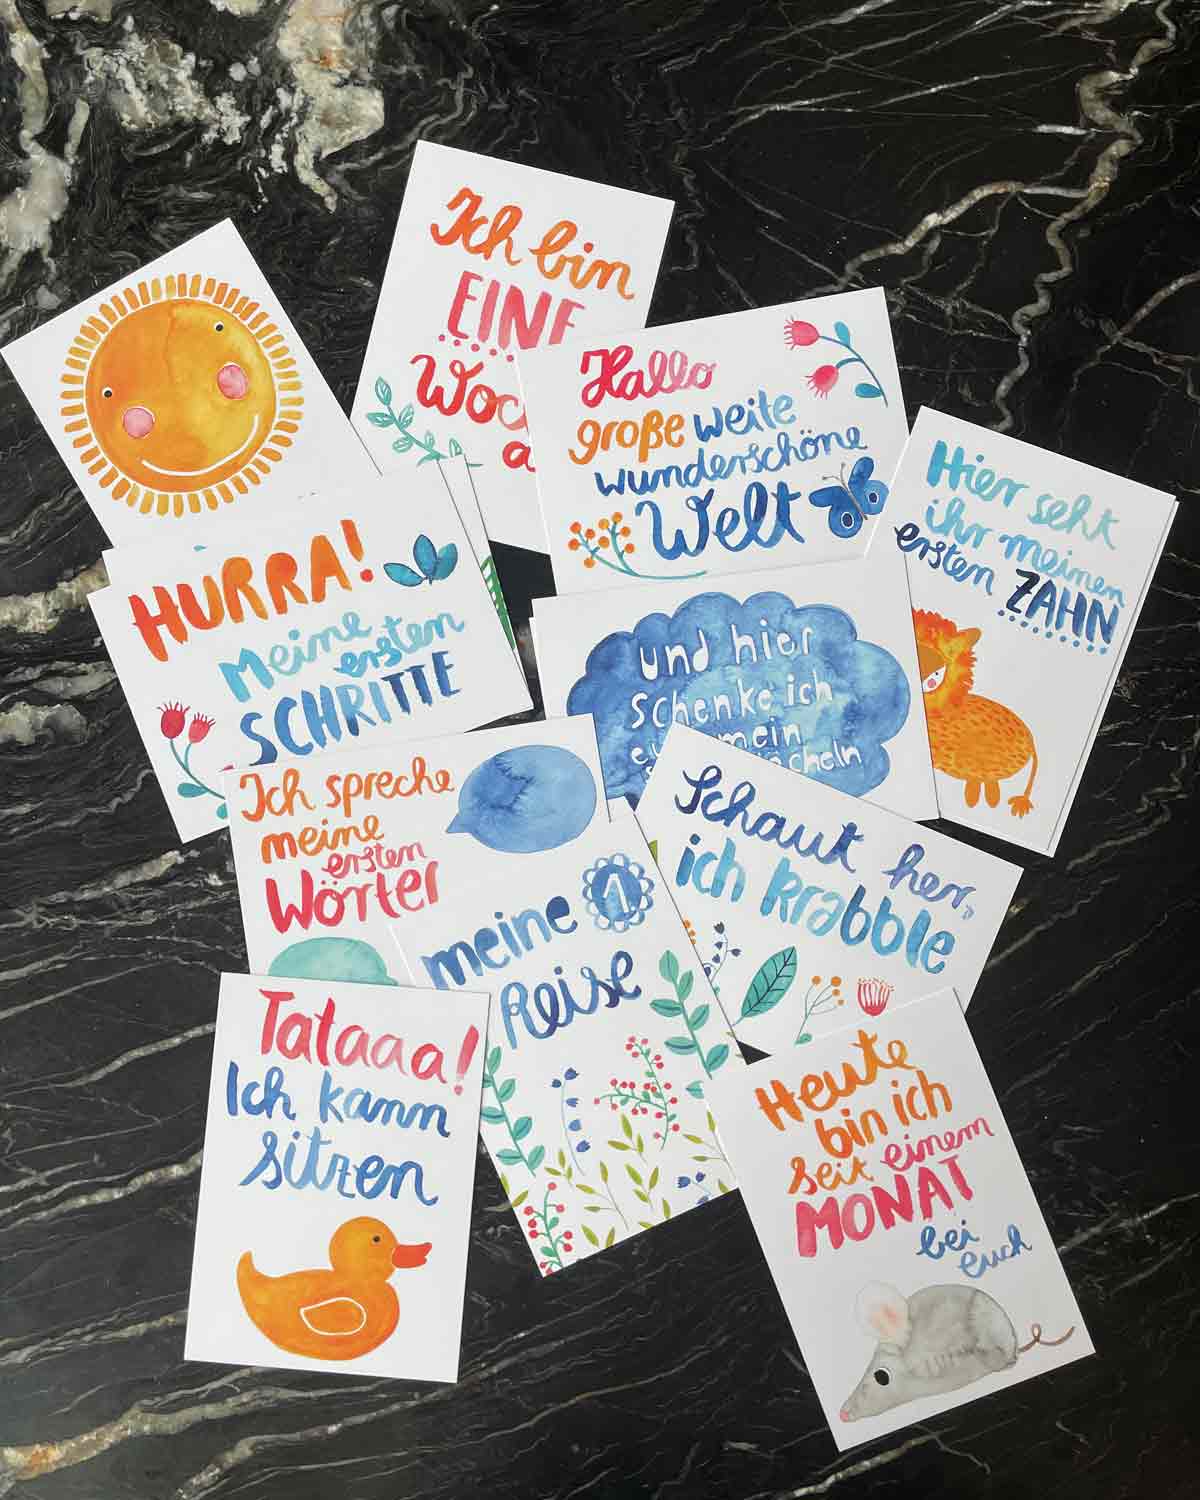 Ich bin
EINE
Woc
a
Hallo
große weite
wunderschöne
Welt
Hier seht
ihr meinen
ersten ZAHN
HURRA!
Meine
ersten
SCHRITTE
und hier
schenke ich
mein
Ich spreche
meine
ersten
Wörter
Schaut her,
ich krabble
meine 1
Reise
Tataaa!
Ich kann
sitzen
Heute
bin ich
seit einem
MONAT
bei
euch